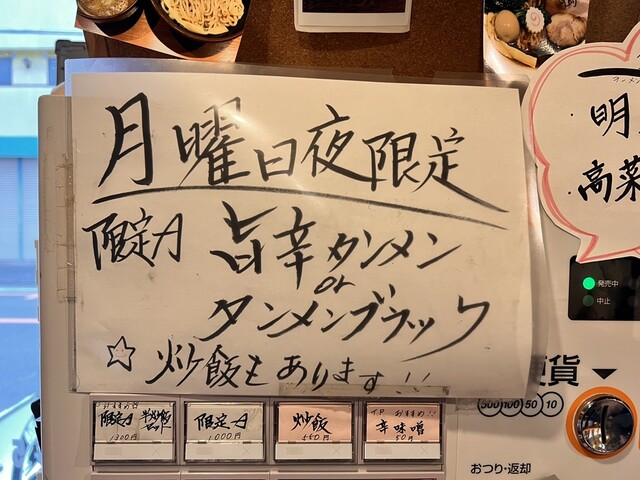 月曜日夜限定
限定A 旨辛タンメン
or
タンメンブラック
☆炒飯もあります!!
明
高菜
発売中
中止
硬貨
500 100 50 10
おつり・返却
おすすめ
限定A 半炒飯
1300円
限定A
1000円
炒飯
550円
イチオシ おすすめ!!
辛味噌
50円